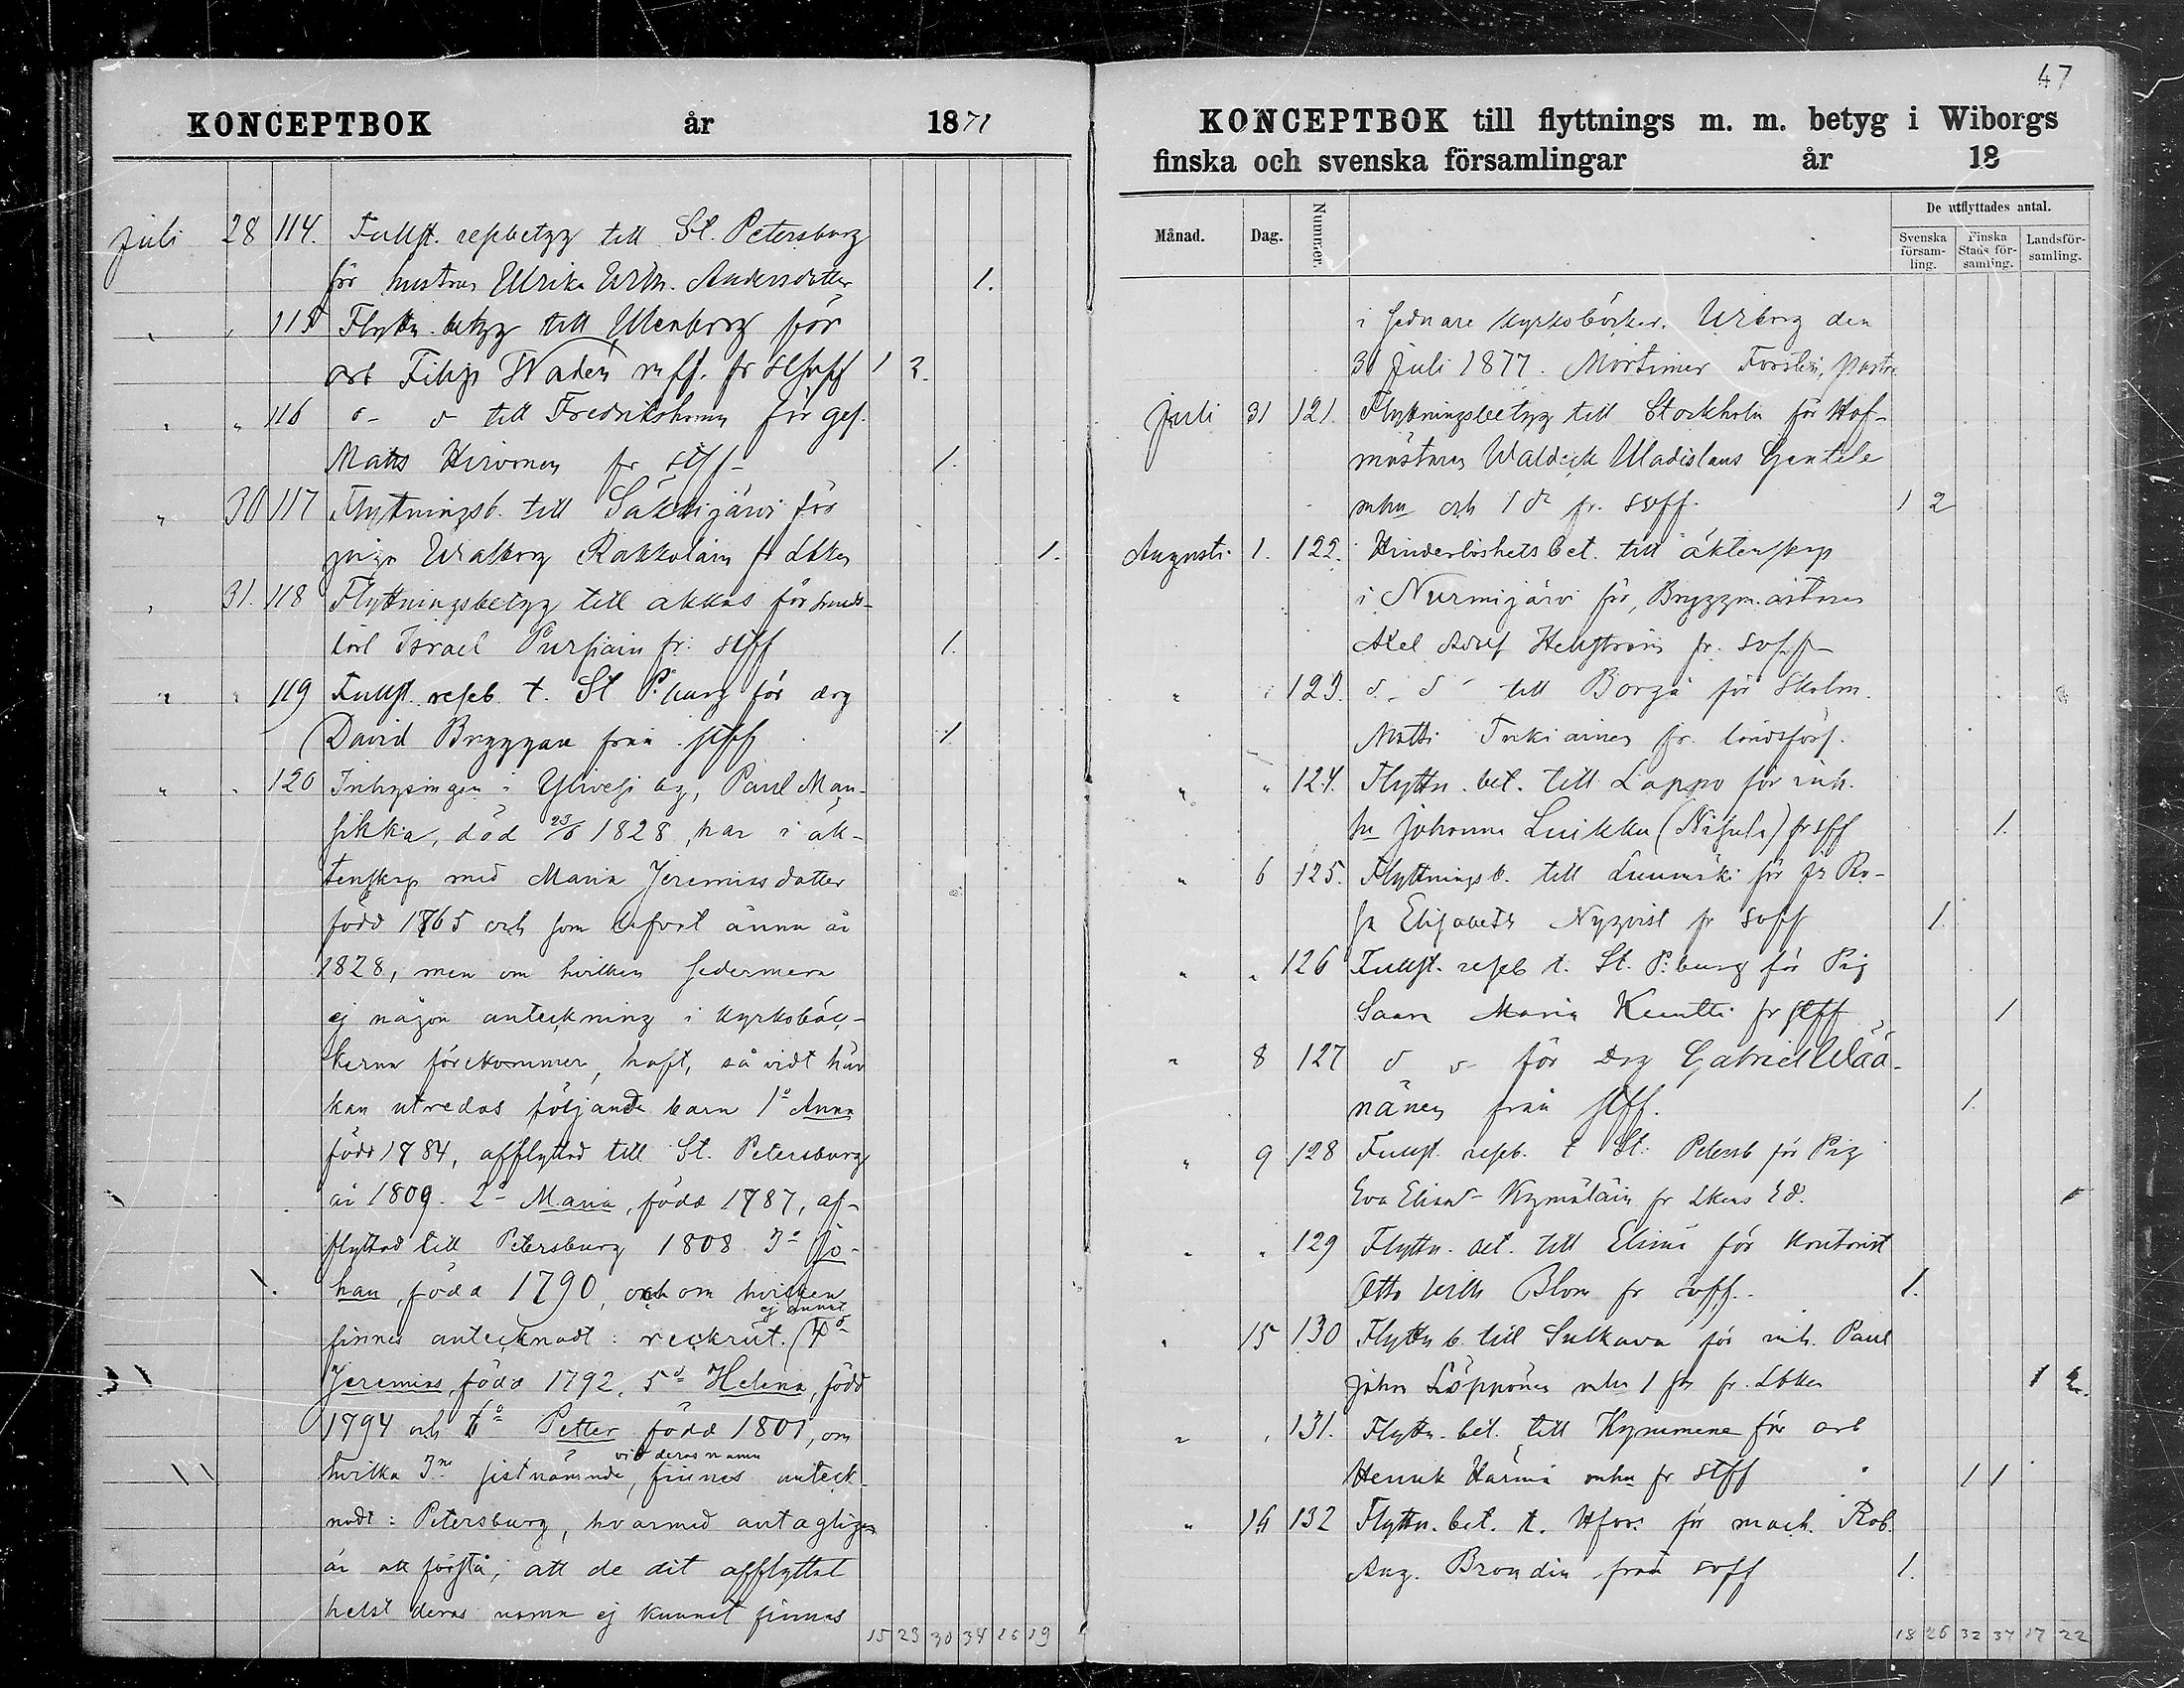 KONCEPTBOK år 1871
Juli 28 114. Fullst. resebetyg till St. Petersburg
för hustrun Ulrika Wilh. Andersdotter 1.
" " 115 Flyttn. betyg till Uleåborg för
arb Filip Wadén m ff. fr 1 2.
" " 116 d- d till Fredrikshamn för ges.
Matts Hirvonen fr stff 1.
" 30 117 Flyttningsb. till Säkkijärvi för
pigan Walborg Rakkolain fr Ldskn 1.
" 31. 118 Flyttningsbetyg till Akkas för
Israel Pursiain fr. stff 1.
" " 119 Fullst. reseb t. St P:burg för drg
David Bryggare från stff 1.
" " 120 Inhysingen i Ylivesi by, Paul Man-
sikka, död 23/6 1828, har i äk-
tenskap med Maria Jeremiasdotter
född 1765 och som lefvat ännu år
1828, men om hvilken sedermera
ej någon anteckning i kyrkoböc-
kerna förekommer, haft, så vidt här
kan utredas följande barn 1o Anna
född 1784, afflyttad till St. Petersburg
år 1809. 2o Maria, född 1787, af-
flyttad till Petersburg 1808 3o Jo-
han, född 1790, och om hvilken
ej annat
finnes antecknadt: reckrut. 4o
Jeremias, född 1792, 5o Helena, född
1794 och 6o Petter född 1801, om
vid deras namn
hvilka 3ne sistnämnde, finnes anteck-
nadt: Petersburg, hvarmed antagligen
är att förstå, att de dit afflyttat
helst deras namn ej kunnat finnas
15 23 30 34 16 19
47
KONCEPTBOK till flyttnings m. m. betyg i Wiborgs
finska och svenska församlingar år 18
Månad. Dag. Nummer. De utflyttades antal.
Svenska försam-ling. Finska Stads för-samling. Landsför-samling.
i sednare kyrkoböcker. Wiborg den
31 Juli 1877. Mortimer Forstén, pastor
Juli 31 121. Flyttningsbetyg till Stockholm för Hof-
mästaren Waldeck Uladislaus Gentele
mhu och 1 dr fr. svff. 1 2
Augusti 1. 122. Hinderlöshetsbet. till äktenskap
i Nurmijärvi för, Bryggmästaren
Axel Adolf Hellström fr. svff
" " 123. d- d- till Borgå för Skolm.
Matti Turkiainen fr. landsförs.
" " 124. Flyttn. bet. till Lappo för inh.
hu Johanna Luikku (Nisula) fr stff 1.
" 6 125. Flyttningsb. till Luumäki för fr Ro-
sa Elisabeth Nyqvist fr svff 1.
" " 126 Fullst. reseb t. St. P:burg för Pig
Saara Maria Kemtti fr stff 1
" 8 127 d d för Drg Gabriel Wää-
nänen från stff. 1.
" 9 128 Fullst. reseb. t St. Petersb för Pig
Eva Elisab Kymäläin fr
" " 129 Flyttn. bet. till Elimä för kontorist
Otto Wilh Blom fr svff. 1.
" 15 130 Flyttn b. till Sulkava för inh. Paul
Johan Löppönen mhu 1 fr. Ldskn 1 2.
" " 131. Flyttn. bet. till Kymmene för arb
Henrik Härmä mhu fr stff 1 1
" 16 132 Flyttn. bet. t. Hfors för mach. Rob.
Aug. Brondin från svff 1.
18 26 32 37 17 22